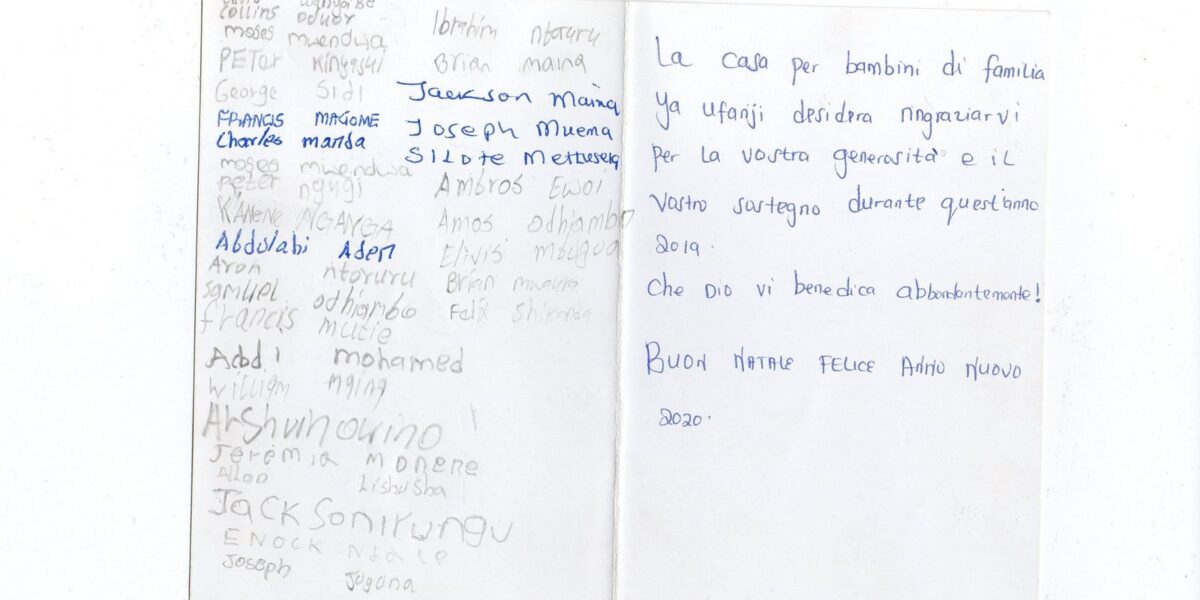 collins oduor
moses mwendwa
PETER Kinyasui
George Sidi
FRANCIS MAGOME
Charles manda
moses mweindwa
peter ngugi
KANENE NGANGA
Abdulahi Aden
Aron ntoruru
samuel odhiambo
francis mutie
Abdi mohamed
william nging
Arshun owino
Jeremia monene
Allon Lishusha
Jackson irungu
ENOCK
Joseph Juguna
Ibrahim ntoruru
Brian maina
Jackson Maina
Joseph Muema
SILOTE
Ambros Ewoi
Amos odhiambo
Elivis mbugua
Brian
Felix
La casa per bambini di familia
ya ufanji desidera ringraziarvi
per la vostra generosità e il
vostro sostegno durante quest'anno
2019.
Che Dio vi benedica abbondantemente!
BUON NATALE FELICE ANNO NUOVO
2020.